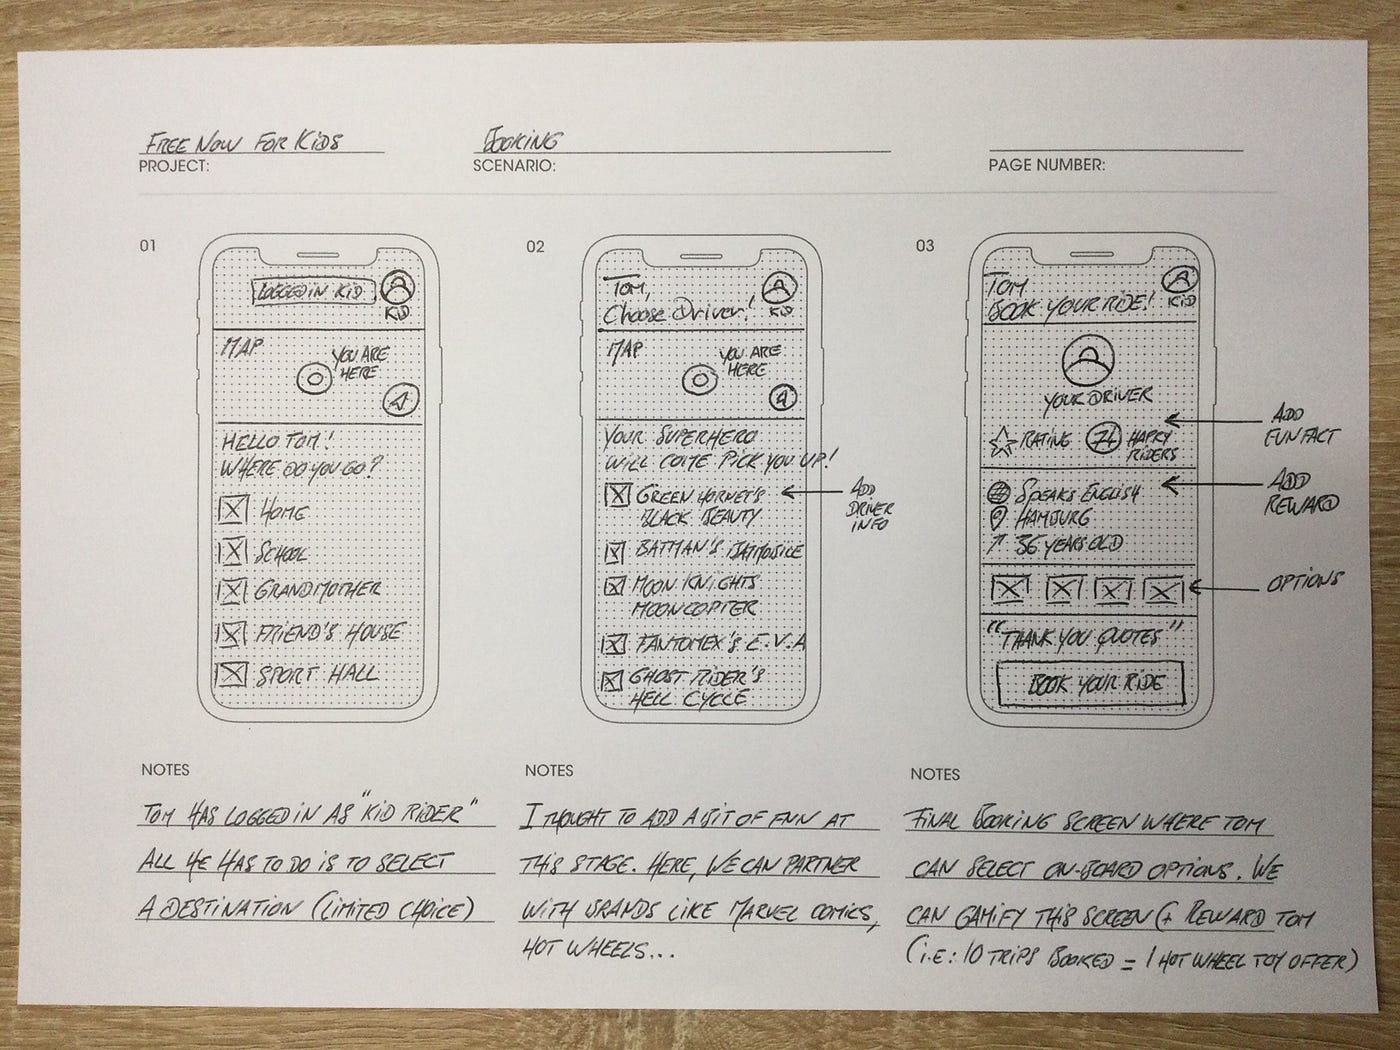 FREE NOW FOR KIDS
PROJECT:
BOOKING
SCENARIO:
PAGE NUMBER:
01
LOGGED IN KID
KID
MAP
YOU ARE
HERE
HELLO TOM!
WHERE DO YOU GO?
HOME
SCHOOL
GRANDMOTHER
FRIEND'S HOUSE
SPORT HALL
NOTES
TOM HAS LOGGED IN AS "KID RIDER"
ALL HE HAS TO DO IS TO SELECT
A DESTINATION (LIMITED CHOICE)
02
TOM,
Choose Driver!
KID
MAP
YOU ARE
HERE
YOUR SUPERHERO
WILL COME PICK YOU UP!
GREEN HORNET'S
BLACK BEAUTY
BATMAN'S
MOON KNIGHTS
MOONCOPTER
FANTOMEX'S E.V.A
GHOST RIDER'S
HELL CYCLE
ADD
DRIVER
INFO
NOTES
I THOUGHT TO ADD A BIT OF FUN AT
THIS STAGE. HERE, WE CAN PARTNER
WITH BRANDS LIKE MARVEL COMICS,
HOT WHEELS...
03
TOM
BOOK YOUR RIDE!
KID
YOUR DRIVER
RATING
74
HAPPY
RIDERS
SPEAKS ENGLISH
HAMBURG
36 YEARS OLD
"THANK YOU QUOTES"
BOOK YOUR RIDE
ADD
FUN FACT
ADD
REWARD
OPTIONS
NOTES
FINAL BOOKING SCREEN WHERE TOM
CAN SELECT ON-BOARD OPTIONS. WE
CAN GAMIFY THIS SCREEN (+ REWARD TOM
(i.E: 10 TRIPS BOOKED = 1 HOT WHEEL TOY OFFER)